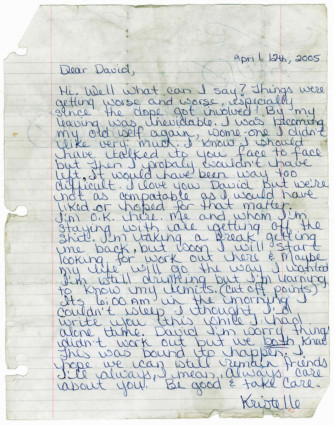 April 12th, 2005
Dear David,
Hi. Well what can I say? Things were
getting worse and worse, especially
since the dope got involved. By my
leaving was inevidable. I was becoming
my old self again, some-one I didn't
like very much. I know I should
have talked to you face to face
but then I probaly couldn't have
left. It would have been way too
difficult. I love you David but we're
not as compatable as I would have
liked or hoped for that matter.
I'm O.K. here. Me and whom I'm
staying with are getting off the
shit. I'm taking a break, getting
me back, but soon I will start
looking for work out here & maybe
my life will go the way I wanted
I'm still drinking but I'm learning
to know my limits (cut off points)
Its 6:00 AM in the morning I
couldn't sleep I thought I'd
write you this while I had
alone time. David I'm sorry things
didn't work out but we both knew
this was bound to happen. I
hope we can still remain friends
I'll always, I mean, always care
about you. Be good & take care.
Kristelle